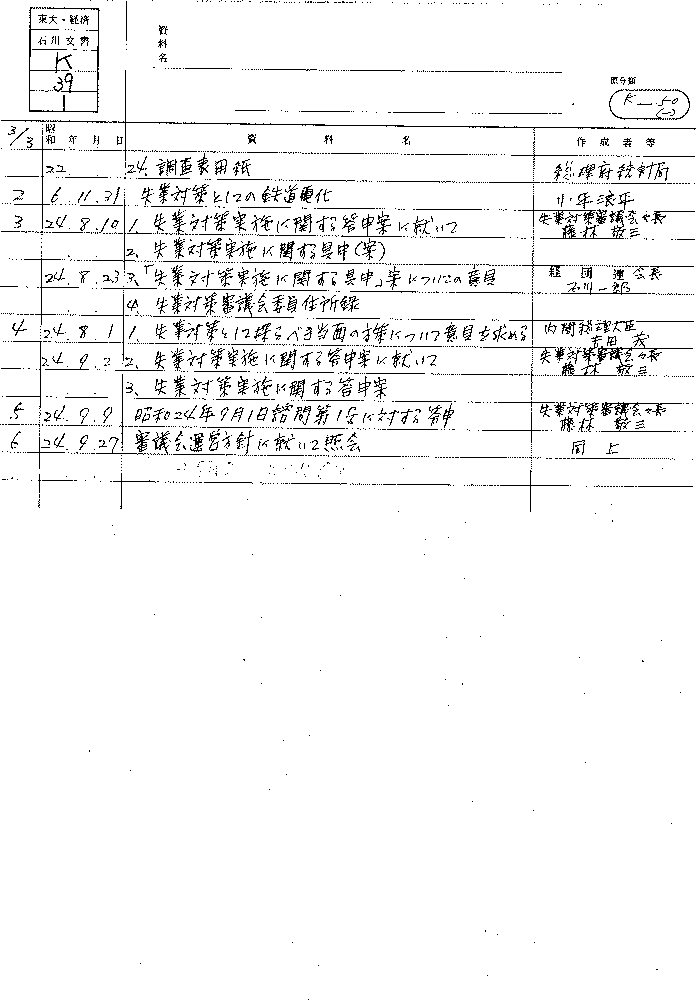 東大・経済
石川文書
K
39
1
資料名
原分類
K-50
(-)
3/3 昭和 年 月 日 資料名 作成者等
22 24. 調査表用紙 総理府統計局
2 6.11.31 失業対策としての鉄道電化 小平浪平
3 24.8.10 1. 失業対策実施に関する答申案に就いて 失業対策審議会々長
藤林敬三
2. 失業対策実施に関する具申(案)
24.8.23 3.「失業対策実施に関する具申」案についての意見 経団連会長
石川一郎
4. 失業対策審議会委員住所録
4 24.8.1 1. 失業対策として採るべき当面の方策について意見を求める 内閣総理大臣
吉田茂
24.9.2 2. 失業対策実施に関する答申案に就いて 失業対策審議会々長
藤林敬三
3. 失業対策実施に関する答申案
5 24.9.9 昭和24年9月1日諮問第1号に対する答申 失業対策審議会々長
藤林敬三
6 24.9.27 審議会運営方針に就いて照会 同上